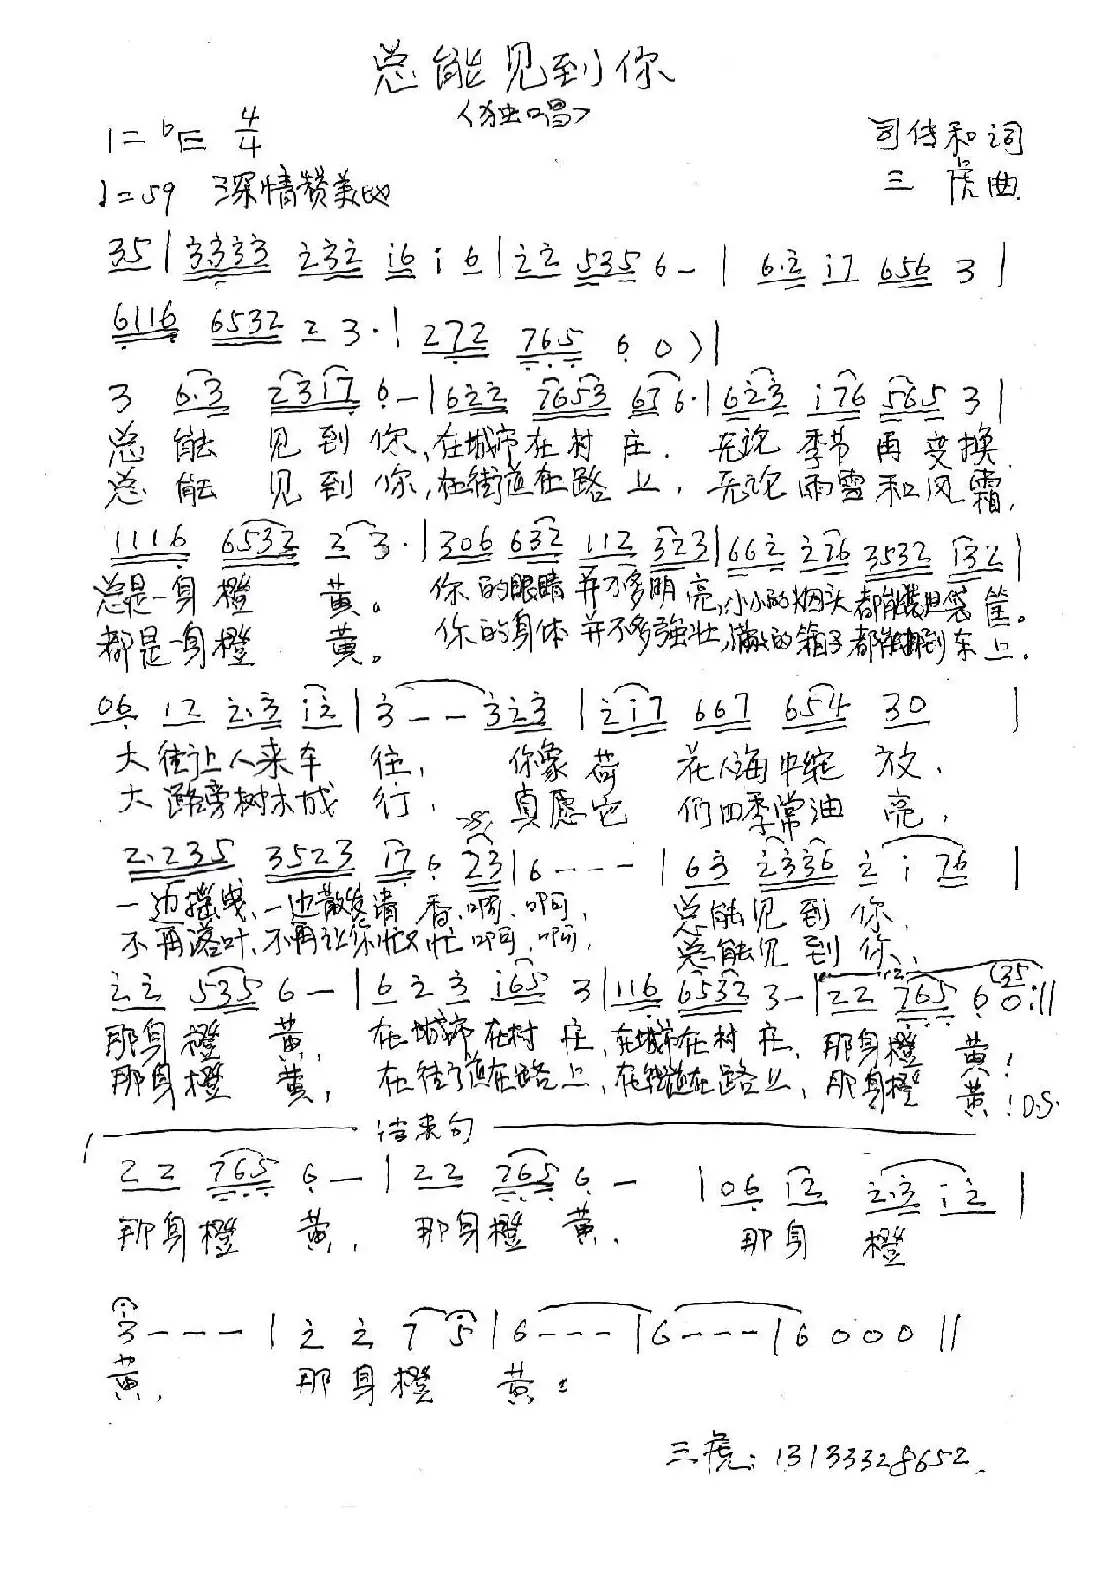 总能见到你
<独唱>
1=bE 4/4
司传和词
♩=59 深情赞美地
三虎曲
35|3333 232 i6 i 6|22 535 6-|6.2 i7 656 3|
6116 6532 2 3.|272 765 6 0)|
3 6.3 2317 6-|622 7653 676.|623 i76 565 3|
总能见到你,在城市在村庄.无论季节再变换.
总能见到你,在街道在路上,无论雨雪和风霜,
1116 6532 2 3.|306 632 112 323|662 226 3532 132|
总是一身橙黄。你的眼睛并不多明亮,小小的烟头都能装进筐。
都是一身橙黄。你的身体并不多強壮,满的箱子都能到车上.
06 12 2.3 i2|3--323|2i7 667 654 30|
大街让人来车往,你象荷花人海中绽放.
大路旁树木成行.真愿它们四季常油亮.
2.235 3523 i7 6 23|6---|63 2336 2 i 26|
一边摇曳,一边散发清香.啊.啊,总能见到你.
不再落叶,不再让你忙又忙.啊,啊,总能见到你,
22 535 6-|623 i65 3|116 6532 3-|22 765 60(35:||
那身橙黄,在城市在村庄,在城市在村庄,那身橙黄!
那身橙黄,在街道在路上,在街道在路上,那身橙黄!D.S.
结束句
22 765 6-|22 765 6-|06 i2 2.3 i2|
那身橙黄,那身橙黄.那身橙
3---|2 2 7 5|6---|6---|6000||
黄,那身橙黄!
三虎:13133328652.